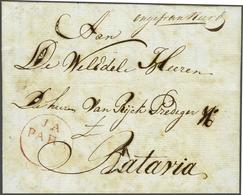 ongefrankeerd
Aan
De WelEdele Heeren
De heeren Van Ryck Prediger &
JA
PAR
Batavia